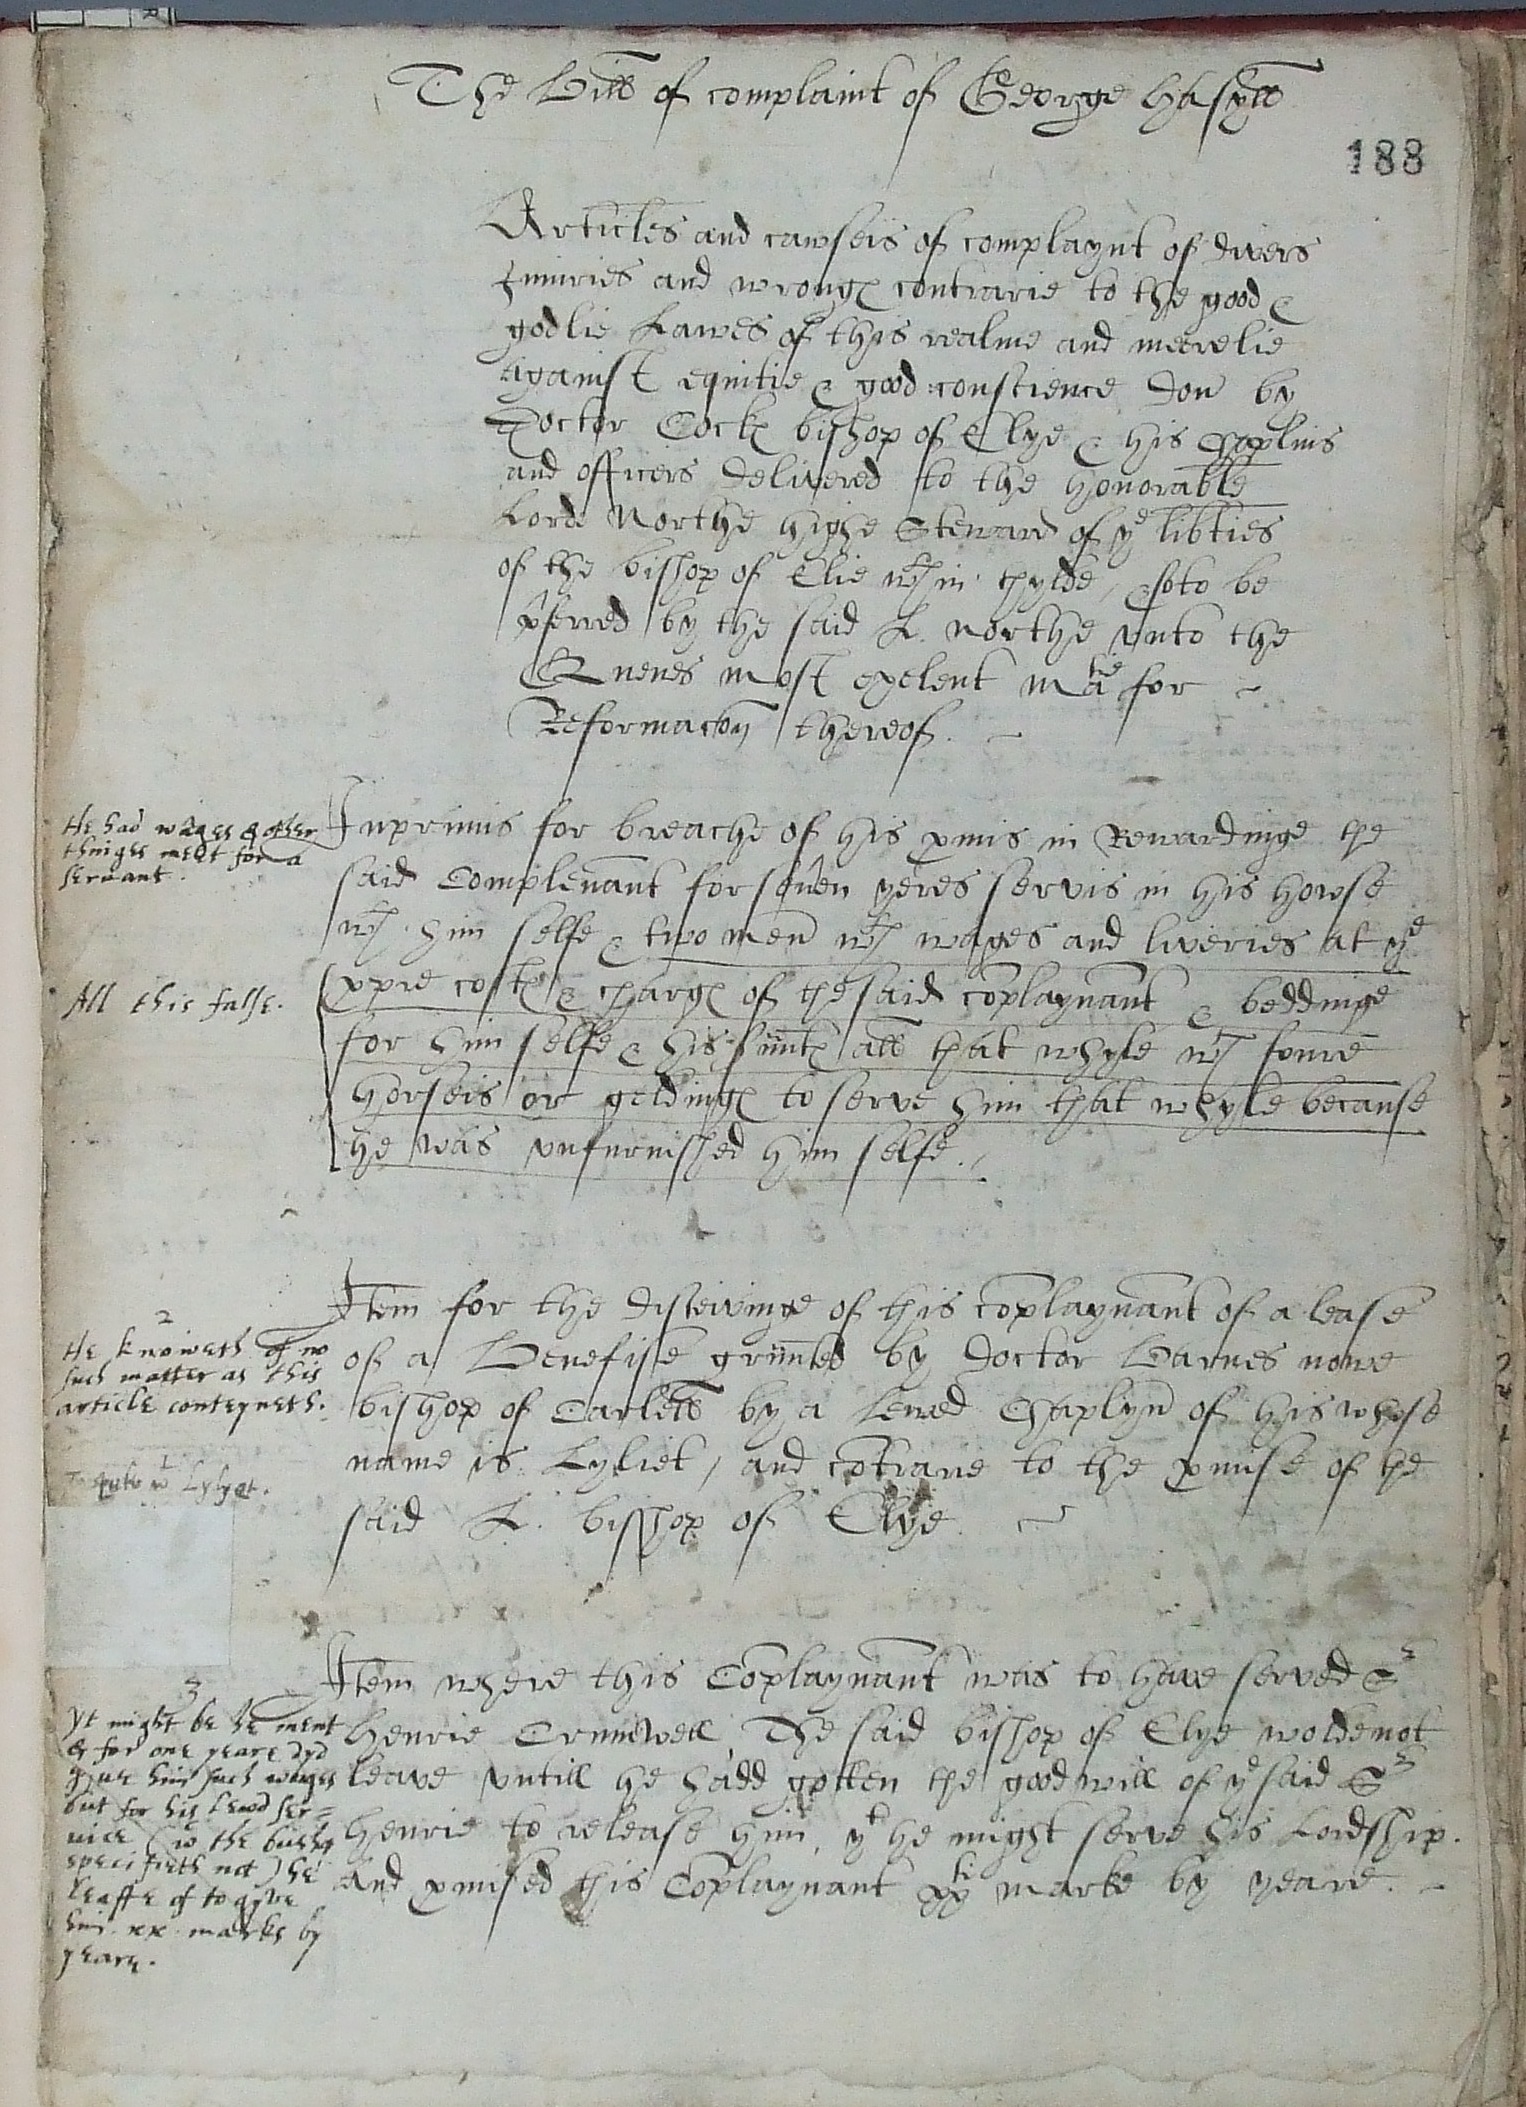 The Bill of complaint of George Hasyll
188
Articles and cawseis of complaynt of divers
Iniuries and wronges contrarie to the good &
godlie Lawes of this realme and meerelie
against equitie & good conscience don by
Doctor Cockes bishop of Elye & his chaplins
and officers delivered to the honorable
Lorde Northe highe Steward of ye libties
of the bishop of Elie wthin thylde, & so to be
pferred by the said L. Northe vnto the
Quenes most exelent Matie for
Reformacon thereof.
He had wages & other
thinges meet for a
servant.
Inprimis for breache of his pmis in Rewardinge the
said Complenant for seven yeres servis in his howse
wth him selfe & two men wth wages and liveries at ye
All this false.
ppre costes & charges of the said coplaynant & beddinge
for him selfe & his svntes all that whyle wth foure
horseis or geldinges to serve him that whyle because
he was vnfurnished him selfe.
2
He knoweth of no
such matter as this
article conteyneth.
Item for the disceivinge of this coplaynant of a lease
of a Benefise graunted by doctor Barnes nowe
bishop of Carlill by a Lewd Chaplyn of his whose
name is Lyliet, and cotrarie to the pmise of the
Lylyat.
said L. bisshop of Elye.
3
Yt might be he ment
& for one yeare dyd
gyue him such wages
but for his lewd ser=
uice (wc the bushop
specifieth not) he
leaffe of to gyve
him xx marks by
yeare.
Item where this Coplaynant was to have served Sr
Henrie Crumwell The said bishop of Elye wolde not
leave vntill he hadd gotten the good will of ye said Sr
Henrie to release him, yt he might serve his Lordship.
And pmised this Coplaynant xxtie marke by yeare.